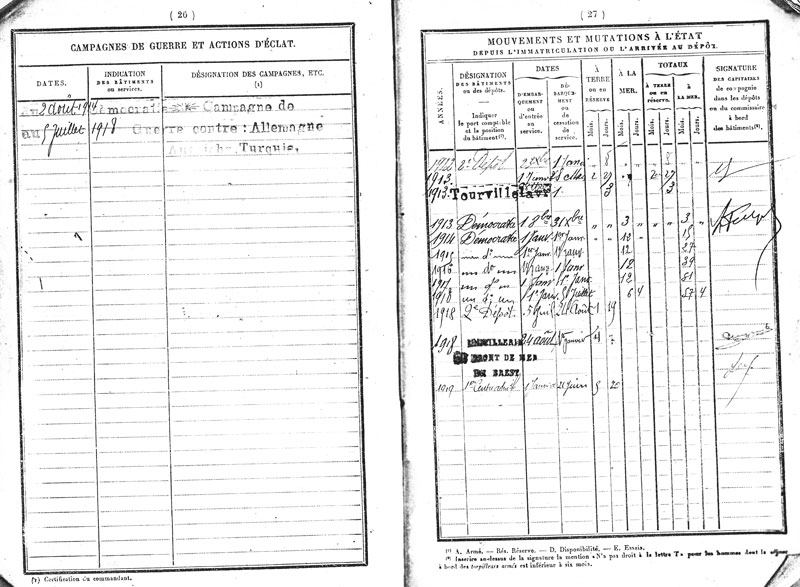 ( 26 )
CAMPAGNES DE GUERRE ET ACTIONS D'ÉCLAT.
DATES.
INDICATION
DES BÂTIMENTS
ou services.
DÉSIGNATION DES CAMPAGNES, ETC.
(1)
2 août 1914 Campagne de
au 5 Juillet 1918 Guerre contre: Allemagne
Autriche, Turquie,
(1) Certification du commandant.
( 27 )
MOUVEMENTS ET MUTATIONS À L'ÉTAT
DEPUIS L'IMMATRICULATION OU L'ARRIVÉE AU DÉPÔT.
ANNÉES.
DÉSIGNATION
DES BÂTIMENTS
ou des dépôts.
Indiquer
le port comptable
et la position
du bâtiment(1).
DATES
D'EMBAR-
QUEMENT
ou
d'entrée
au
service.
DÉ-
BARQUE-
MENT
ou
de
cessation
de
service.
À
TERRE
ou en
RÉSERVE
Mois.
Jours.
À LA
MER.
Mois.
Jours.
TOTAUX
À TERRE
ou en
réserve.
Mois.
Jours.
À
LA MER.
Mois.
Jours.
SIGNATURE
DES CAPITAINES
de compagnie
dans les dépôts
ou du commissaire
à bord
des bâtiments(2).
1912 2e Dépôt 1 Janv 8 8
1913 1 Janv 2 27 2 27
1913 Tourville 1 3 3
1913 Démocratie 1 8bre 31 Xbre 3 3
1914 Démocratie 1 Janv. 1er Janv 12 15
1915 d° 1er Janv 1 Janv 12 27
1916 d° 1 Janv 1 Janv 12 39
1917 d° 1 Janv 1er Janv 12 51
1918 d° 1er Janv. 5 Juillet 6 4 57 4
1918 2e Dépôt 5 Juil 24 Août 1 19
1918 24 août 1er janvier 4 7
FRONT DE MER
DE BREST
1919 1er Janvier 21 Juin 5 20
(1) A. Armé. — Rés. Réserve. — D. Disponibilité. — E. Essais.
(2) Inscrire au-dessus de la signature la mention «N'a pas droit à la lettre T» pour les hommes dont le séjour
à bord des torpilleurs armés est inférieur à six mois.